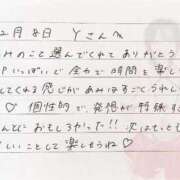 2月8日 Yさんへ
みのこと選んでくれてありがとう
Pいっぱいで全力で時間を楽し
してくれる感じがあみはすごくうれし
♡ 個性的で、発想が特殊す
んじおもしろかった!! 次はもっと
しいことして楽しもうね♡